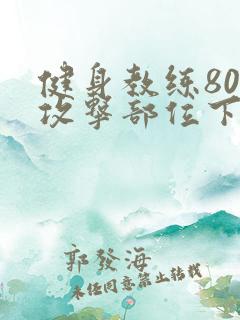 健身教练80
攻擊部位下
郭發海
未经同意禁止转载